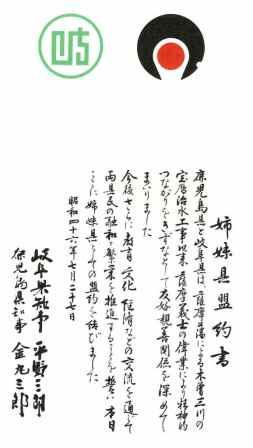 岐
姉妹県盟約書
鹿児島県と岐阜県は、薩摩藩による木曽三川の
宝暦治水工事以来、薩摩義士の偉業により精神的
つながりをきずなとして友好親善関係を深めて
まいりました
今後さらに教育 文化 経済などの交流を通じて
両県民の融和と繁栄を推進することを誓い 本日
ここに姉妹県としての盟約を結びました
昭和四十六年七月二十七日
岐阜県知事 平野三郎
鹿児島県知事 金丸三郎